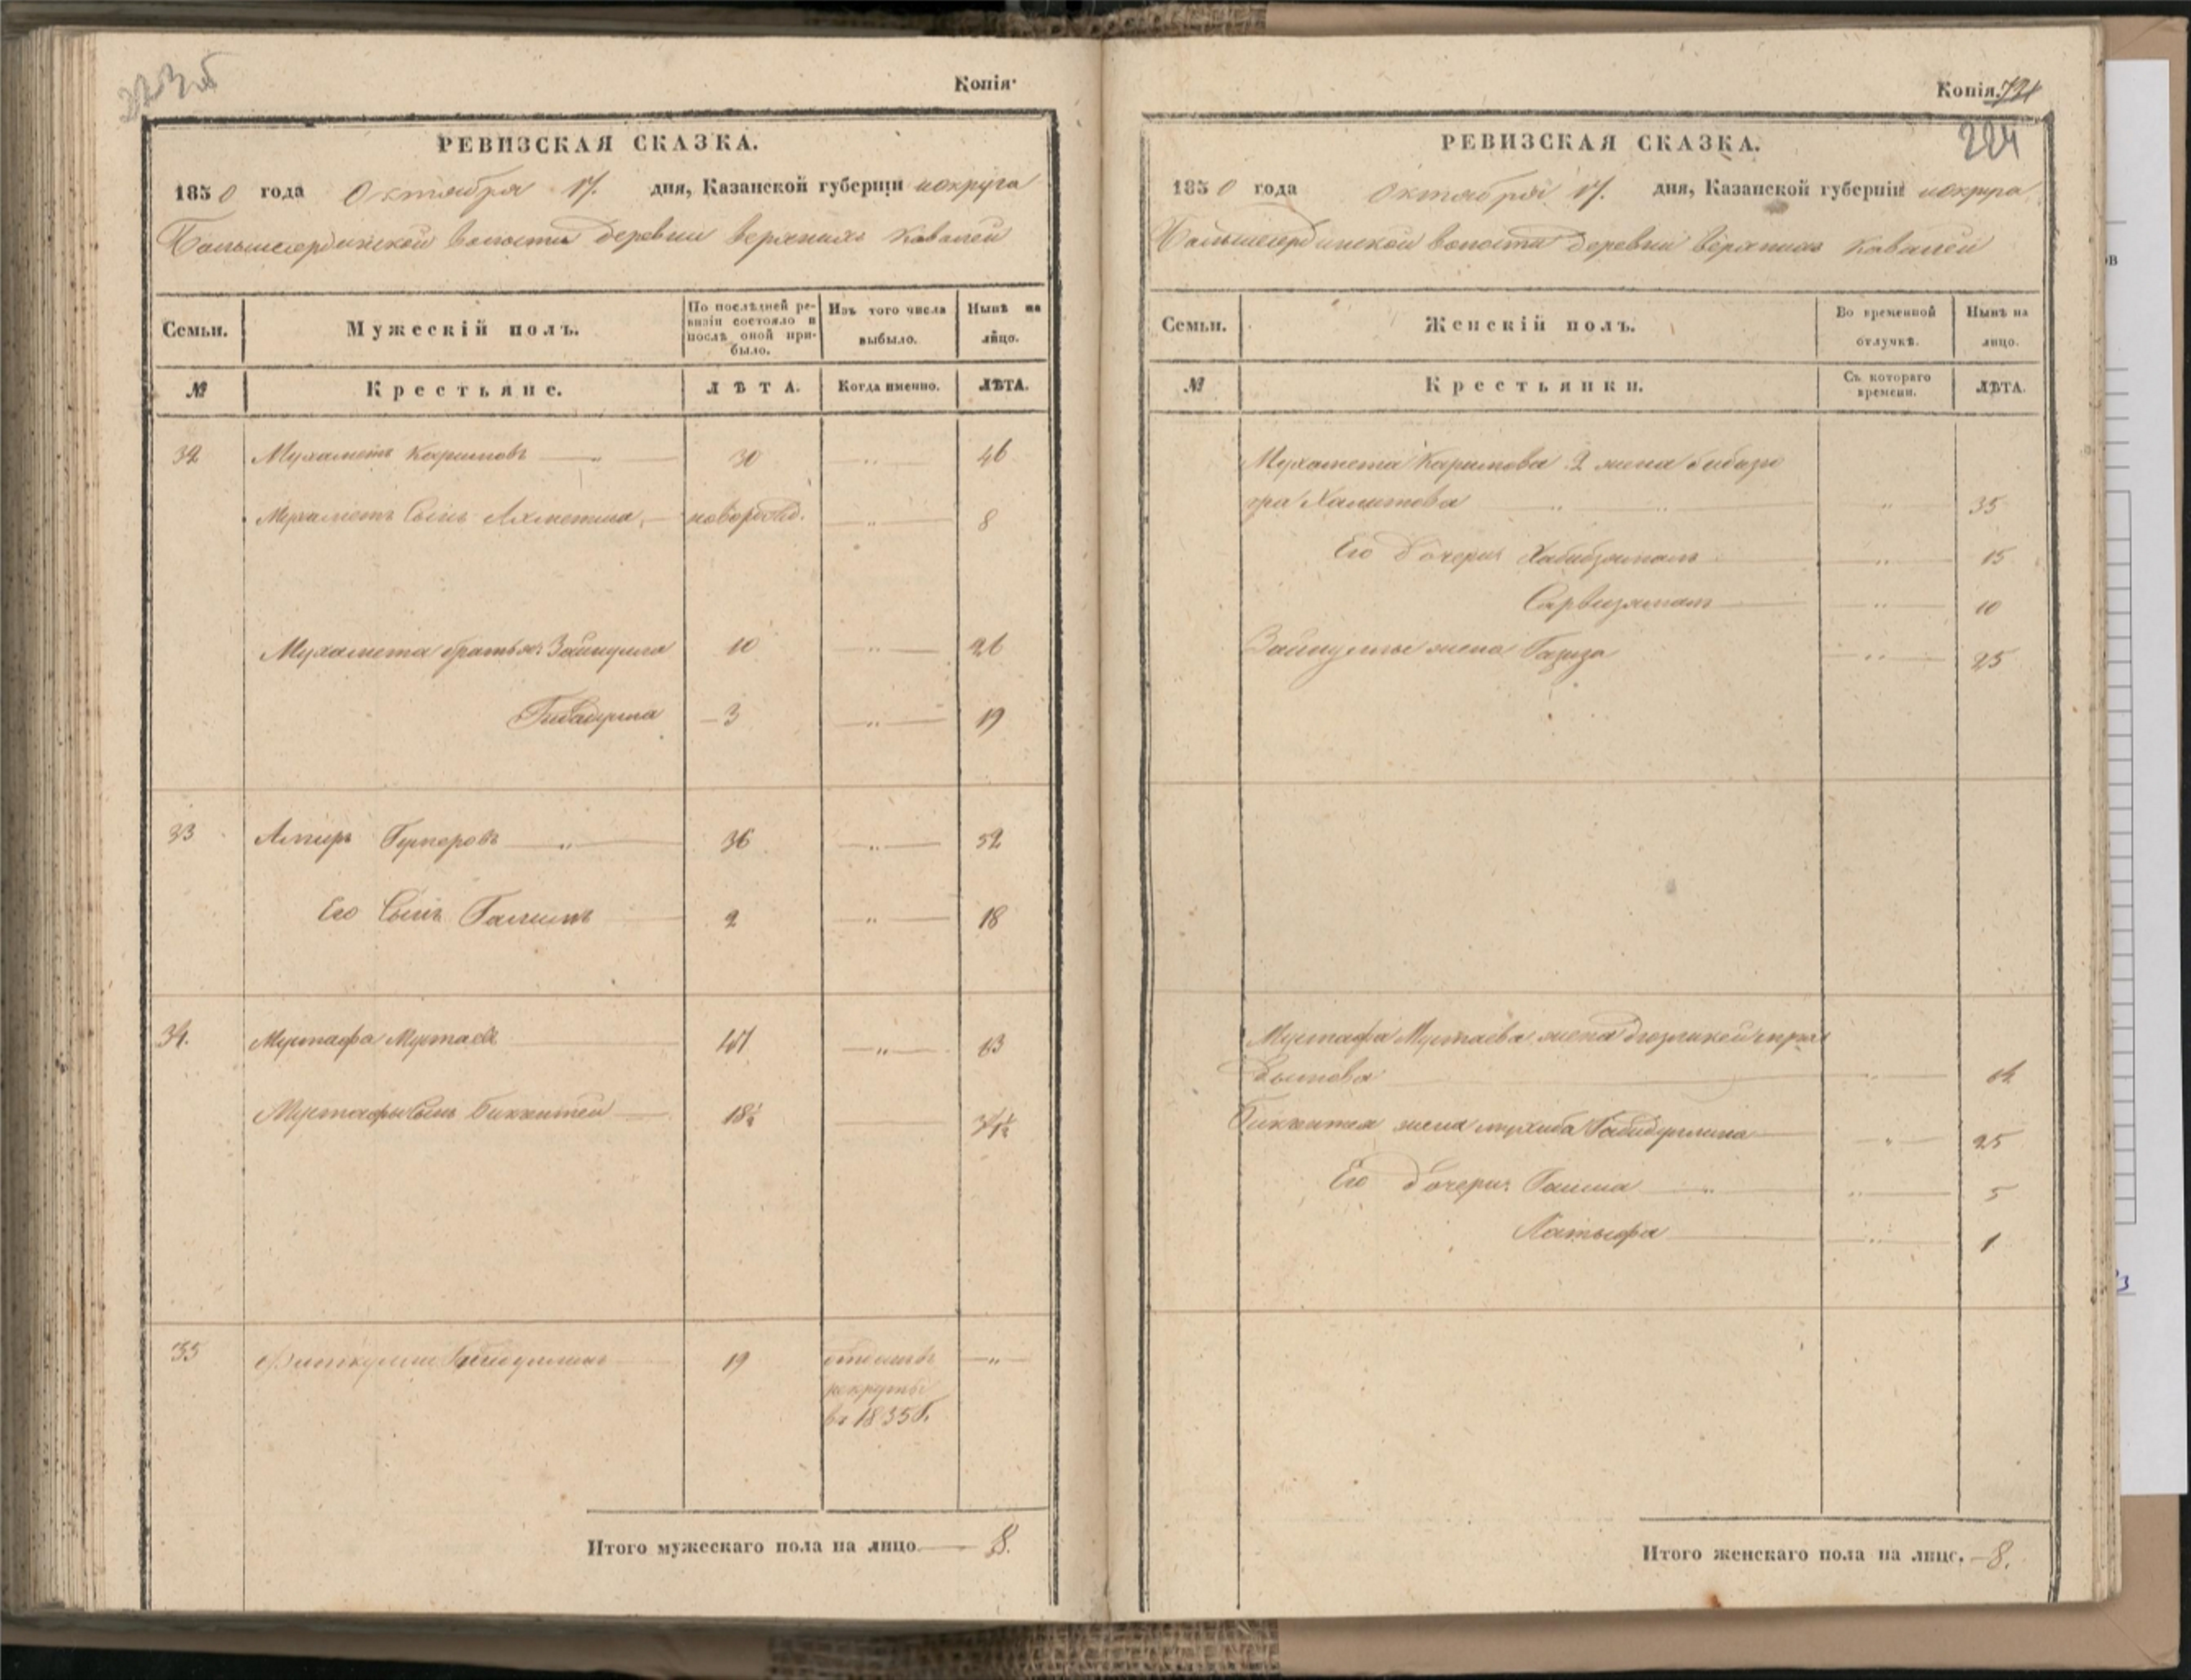 Копія·
РЕВИЗСКАЯ СКАЗКА.
1850 года Октября 17. дня, Казанской губерніи и округа
Большесердинской волости деревни верхнихъ Кавалей
Семьи.
Мужескій полъ.
По послѣдней ре-
визіи состояло и
послѣ оной при-
было.
Изъ того числа
выбыло.
Нынѣ на
лицо.
№
Крестьяне.
ЛѢТА.
Когда именно.
ЛѢТА.
32 Мухаметъ Каримовъ 30 46
Мухаметъ Сынъ Ахметша новорожд. 8
Мухамета братья: Зайнулла 10 26
Гибадулла 3 19
33 Амиръ Гумеровъ 36 52
Его Сынъ Галимъ 2 18
34. Мустафа Мустаевъ 47 63
Мустафы Сынъ Бикчитей 18½ 34½
35 19 отданъ въ
рекруты
въ 1835 г.
Итого мужескаго пола на лицо 8.
Копія. 721
224
РЕВИЗСКАЯ СКАЗКА.
1850 года Октября 17. дня, Казанской губерніи и округа
Большесердинской волости деревни верхнихъ Кавалей
Семьи.
Женскій полъ.
Во временной
отлучкѣ.
Нынѣ на
лицо.
№
Крестьянки.
Съ котораго
времени.
ЛѢТА.
Мухамета Каримова 2 жена бибизю
гра Халитова 35
Его дочери Хабибзямалъ 15
Сарвизямалъ 10
Зайнуллы жена Газиза 25
Мустафа Мустаева жена
64
Бикчитея жена Габидуллина 25
Его дочери: Галима 5
Латыфа 1
Итого женскаго пола на лицо. 8.